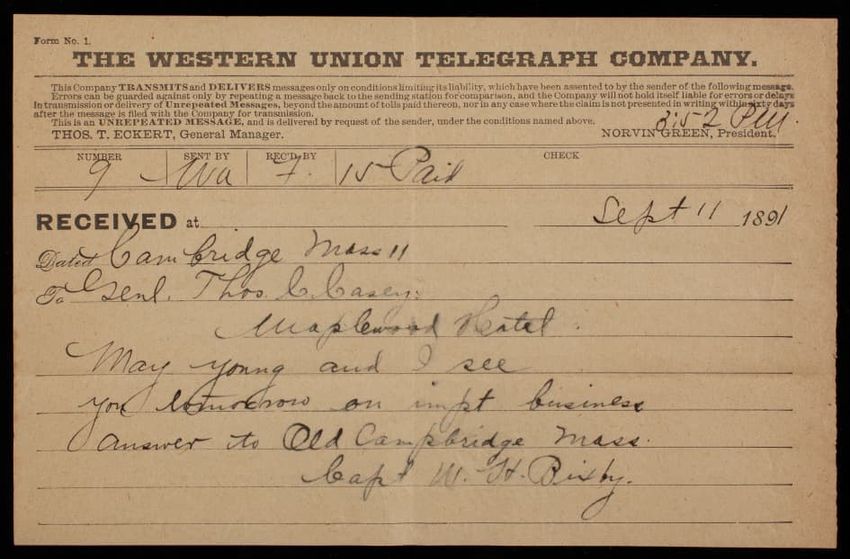 Form No. 1.
THE WESTERN UNION TELEGRAPH COMPANY.
This Company TRANSMITS and DELIVERS messages only on conditions limiting its liability, which have been assented to by the sender of the following message.
Errors can be guarded against only by repeating a message back to the sending station for comparison, and the Company will not hold itself liable for errors or delays
in transmission or delivery of Unrepeated Messages, beyond the amount of tolls paid thereon, nor in any case where the claim is not presented in writing within sixty days
after the message is filed with the Company for transmission.
This is an UNREPEATED MESSAGE, and is delivered by request of the sender, under the conditions named above.
3:52 PM.
THOS. T. ECKERT, General Manager. NORVIN GREEN, President.
NUMBER SENT BY REC'D BY CHECK
9 F. 15 Paid
RECEIVED at Sept 11 1891
Dated Cambridge Mass 11
To Genl. Thos. C. Casey.
Maplewood Hotel.
May young and I see
you tomorrow on impt business
answer to Old Campbridge Mass.
Capt W. H. Bixby.